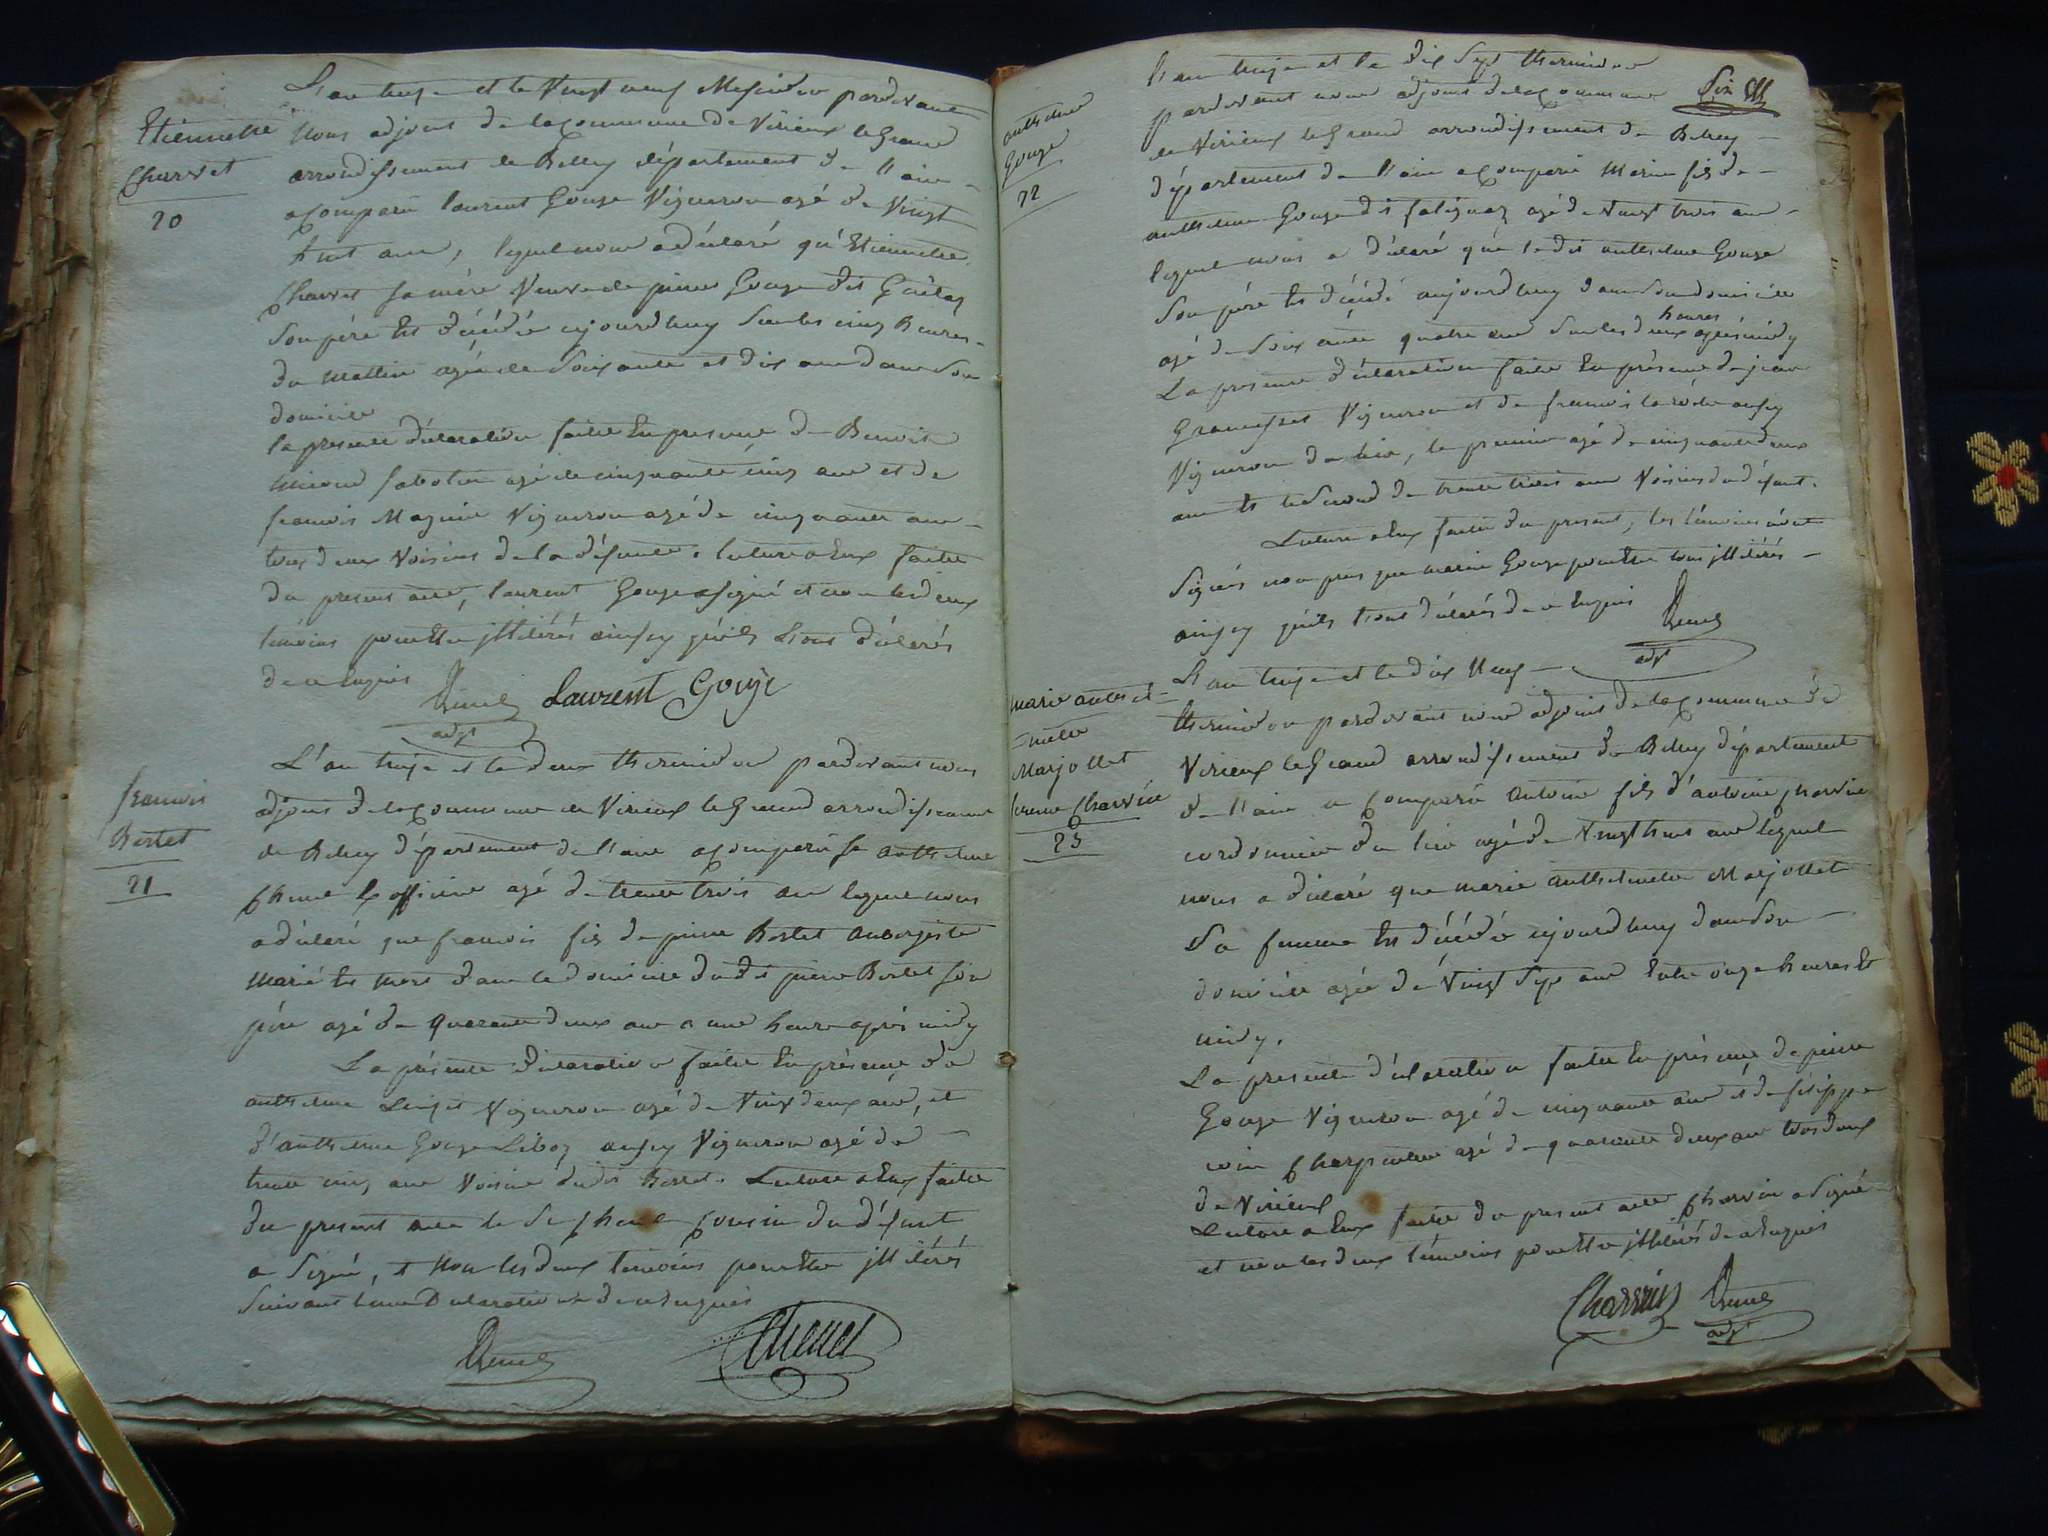 Etiennette
Charvet
20
L'an treze et le Vingt neuf Messidor pardevant
Nous adjoint de la Commune de Virieux le Grand
arrondissement de Belley département de l'ain
a Comparu laurent Gouge Vigneron agé de Vingt
huit ans, lequel nous a déclaré qu'Etiennette
Charvet sa mère Veuve de pierre Gouge dit
Son père Est décédée ajourdhuy Sur les cinq heures
du mattin agée de Soixante et dix ans dans Son
domicile
la presente déclaration faitte En presence de Benoit
Sabotier agé de cinquante cinq ans et de
francois Vigneron agé de cinquante ans
tous deux Voisins de la défunte. lecture a Eux faitte
du present acte, laurent Gouge a signé et non les deux
témoins pour Etre illitérés ainsy qu'ils L'ont déclarés
de ce Enquis
adjt
Laurent Gouje
francois
Bertet
21
L'an treze et le deux thermidor pardevant nous
adjoint de la Commune de Virieux le Grand arrondissement
de Belley département de l'ain a Comparu Sr anthelme
Chenel Ex officier agé de trente trois ans lequel nous
a déclaré que francois fils de pierre Bertet aubergiste
Marié Est Mort dans le domicile dudit pierre Bertet Son
père agé de quarante deux ans a une heure après midy
La présente déclaration faitte En présence de
anthelme Vigneron agé de Vingt deux ans, et
d'anthelme Gouge aussy Vigneron agé de
trente cinq ans Voisins dudit Bertet. Lecture a Eux faitte
du present acte le Sr Chenel Cousin du défunt
a Signé, et Non les deux témoins pour Etre illitérés
Suivant Leur Déclaration de ce Enquis
Chenel
anthelme
Gouge
22
L'an treze et le dix Sept thermidor
pardevant nous adjoint de la Commune
de Virieux le Grand arrondissement de Belley
département de l'ain a Comparu Marin fils de
anthelme Gouge dit agé de Vingt trois ans
lequel nous a déclaré que le dit anthelme Gouge
Son père Est décédé aujourdhuy dans Son domicile
heures
agé de Soixante quatre ans Sur les deux après midy
La presente déclaration faitte En présence de jean
Vigneron et de francois ausy
Vigneron du lieu, le premier agé de cinquante deux
ans Et le Second de trente trois ans Voisins du défunt.
Lecture a Eux faitte du present, les témoins n'ont
Signés non plus que marin Gouge pour Etre tous illitérés
ainsy qu'ils L'ont déclarés de ce Enquis
adjt
marie anthel
mette
Marjollet
femme Charvin
23
L'an treze et le dix Neuf
thermidor pardevant nous adjoint de la Commune de
Virieux le Grand arrondissement de Belley département
de l'ain a Comparu Antoine fils d'antoine Charvin
cordonnier du lieu agé de Vingt huit ans lequel
nous a déclaré que marie anthelmette Marjollet
Sa femme Est décédée ajourdhuy dans Son
domicile agée de Vingt Sept ans Entre onze heures Et
midy.
La presente déclaration faitte En présence de pierre
Gouge Vigneron agé de cinquante ans et de filippe
Charpentier agé de quarante deux ans tous deux
de Virieux
Lecture a Eux faitte du present acte Charvin a Signé
et non les deux témoins pour Etre illitérés de ce Enquis
Charvin
adjt